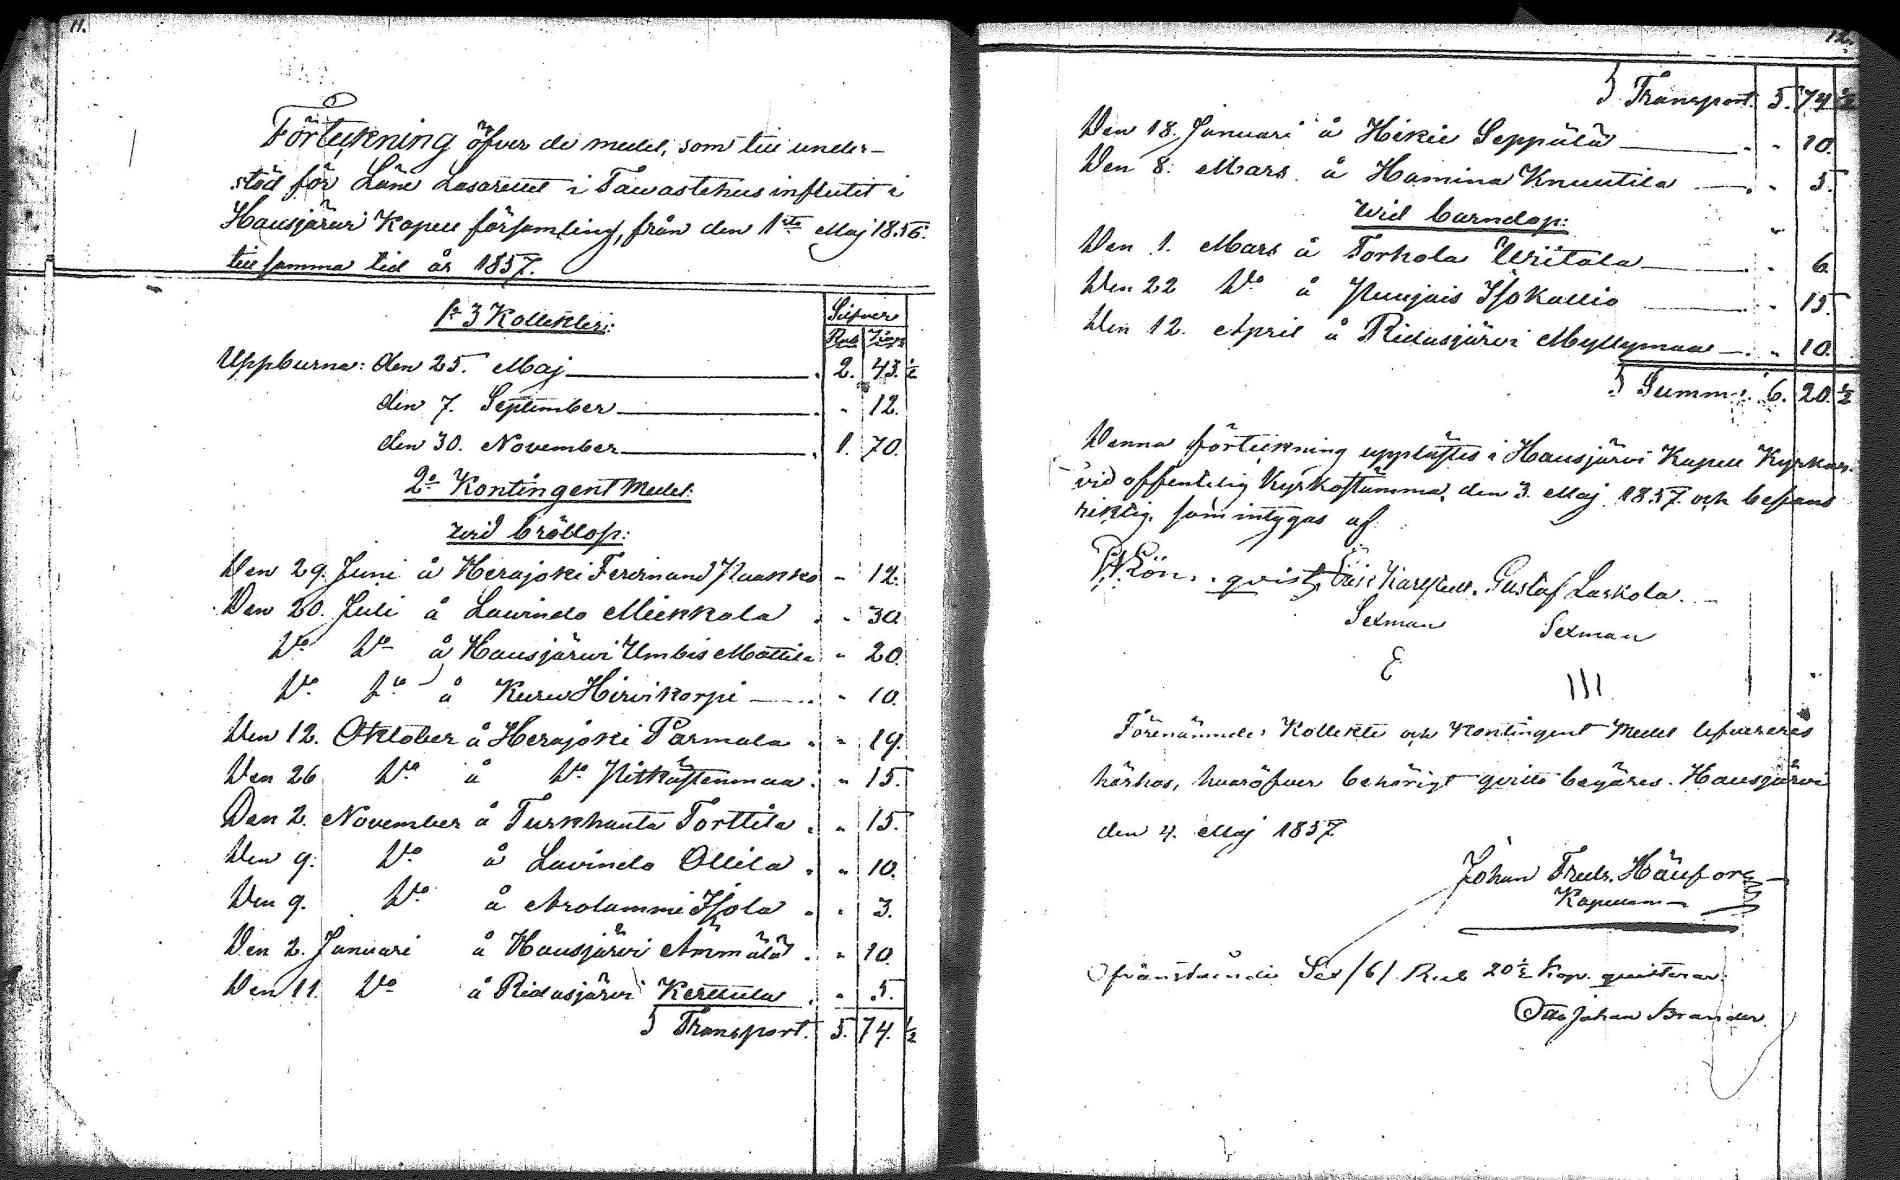 11.
Förteckning öfver de medel, som till under-
stöd för Läns Lasarettet i Tawastehus influtit i
Hausjärwi Kapell församling, från den 1sta Maj 1856.
till samma tid år 1857.
1o 3 Kollekter:
Silfver
Rub. Kop.
Uppburna: den 25. Maj 2. 43. ½
den 7. September " 12.
den 30. November 1. 70.
2o Kontingent Medel.
wid bröllop:
Den 29. Juni å Herajoki Ferdinand Paakko " 12.
Den 20. Juli å Lavindo Mickkola " 30.
Do Do å Hausjärwi Umbis Mattila " 20.
Do Do å Kuru Hirvikorpi " 10.
Den 12. Oktober å Herajoki Parmala " 19.
Den 26 Do å Do Pitkästenmaa " 15.
Den 2. November å Turkhauta Torttila " 15.
Den 9. Do å Lavindo Ollila " 10.
Den 9. Do å Arolammi Isola " 3.
Den 2. Januari å Hausjärwi Ämmälä " 10.
Den 11. Do å Ridasjärwi Kerttula " 5.
Transport. 5. 74. ½
12.
Transport. 5. 74 ½
Den 18. Januari å Hikie Seppälä " 10.
Den 8. Mars å Hamina Knuutila " 5.
wid barndop:
Den 1. Mars å Torhola Uritala " 6.
Den 22 Do å Puujais Isokallio " 15.
Den 12. April å Ridasjärvi Myllymaa " 10.
Summa 6. 20. ½
Denna förteckning upplästes i Hausjärvi Kapell Kyrka
vid offentelig Kyrkostämma, den 3. Maj 1857. och befans
riktig, som intygas af:
Gustaf Laskola.
Sexman Sexman
Förenämnde Kollekte och Kontingent Medel lefvereres
härhos, hvaröfver behörigt qvitto begäres. Hausjärvi
den 4. Maj 1857.
Johan Fredr. Häufor
Kapellan
Ofvanstående Sex /6/. Rub 20½ kop. quitterar.
Otto Johan Brander.